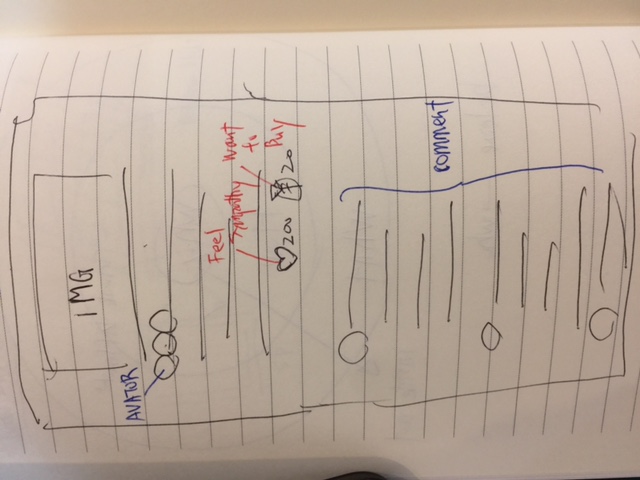 IMG
AVATOR
Feel
Sympathy
Want
to
Buy
200
¥ 20
comment